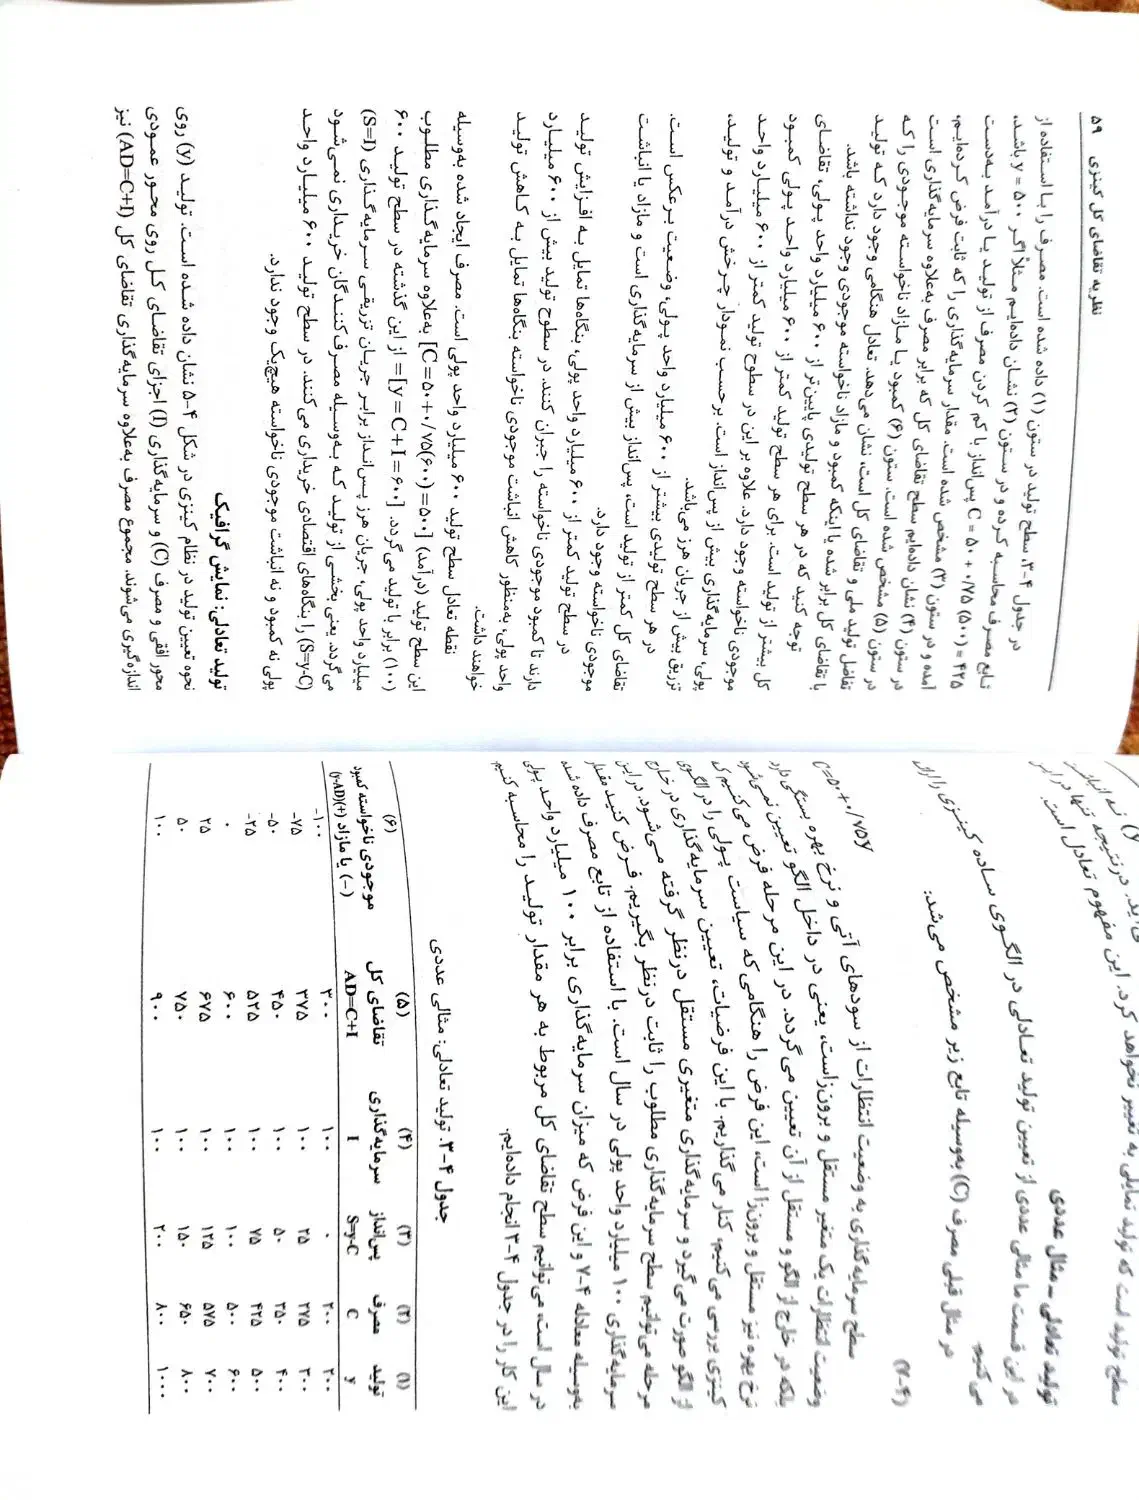 سطح تولید است که تولید تمایلی به تغییر نخواهد کرد. این مفهوم تعادل است.
تولید تعادلی – مثال عددی
در این قسمت ما مثالی عددی از تعیین تولید تعادلی در الگوی ساده کینزی را ارائه
می‌کنیم.
در مثال قبلی مصرف (C) به‌وسیله تابع زیر مشخص می‌شد:
(۷-۴) C=۵۰+۰/۷۵y
سطح سرمایه‌گذاری به وضعیت انتظارات از سودهای آتی و نرخ بهره بستگی دارد
وضعیت انتظارات یک متغیر مستقل و برون‌زاست، یعنی در داخل الگو تعیین نمی‌شود
بلکه در خارج از الگو و مستقل از آن تعیین می‌گردد. در این مرحله فرض می‌کنیم که
نرخ بهره نیز مستقل و برون‌زا است، این فرض را هنگامی که سیاست پولی را در الگوی
کینزی بررسی می‌کنیم، کنار می‌گذاریم. با این فرضیات، تعیین سرمایه‌گذاری در خارج
از الگو صورت می‌گیرد و سرمایه‌گذاری متغیری مستقل درنظر گرفته می‌شود. در این
مرحله می‌توانیم سطح سرمایه‌گذاری مطلوب را ثابت درنظر بگیریم. فرض کنید مقدار
سرمایه‌گذاری ۱۰۰ میلیارد واحد پولی در سال است. با استفاده از تابع مصرف داده شده
به‌وسیله معادله ۴-۷ و این فرض که میزان سرمایه‌گذاری برابر ۱۰۰ میلیارد واحد پولی
در سال است، می‌توانیم سطح تقاضای کل مربوط به هر مقدار تولید را محاسبه کنیم
این کار را در جدول ۴-۳ انجام داده‌ایم.
جدول ۴-۳. تولید تعادلی: مثالی عددی
(۱) (۲) (۳) (۴) (۵) (۶)
تولید مصرف پس‌انداز سرمایه‌گذاری تقاضای کل موجودی ناخواسته کمبود
y C S=y-C I AD=C+I (–) یا مازاد (+)(y-AD)
۲۰۰ ۲۰۰ ۰ ۱۰۰ ۳۰۰ -۱۰۰
۳۰۰ ۲۷۵ ۲۵ ۱۰۰ ۳۷۵ -۷۵
۴۰۰ ۳۵۰ ۵۰ ۱۰۰ ۴۵۰ -۵۰
۵۰۰ ۴۲۵ ۷۵ ۱۰۰ ۵۲۵ -۲۵
۶۰۰ ۵۰۰ ۱۰۰ ۱۰۰ ۶۰۰ ۰
۷۰۰ ۵۷۵ ۱۲۵ ۱۰۰ ۶۷۵ ۲۵
۸۰۰ ۶۵۰ ۱۵۰ ۱۰۰ ۷۵۰ ۵۰
۱۰۰۰ ۸۰۰ ۲۰۰ ۱۰۰ ۹۰۰ ۱۰۰
نظریه تقاضای کل کینزی ۵۹
در جدول ۴-۳، سطح تولید در ستون (۱) داده شده است. مصرف را با استفاده از
تابع مصرف محاسبه کرده و در ستون (۲) نشان داده‌ایم مثلاً اگر y = ۵۰۰ باشد،
C = ۵۰ + ۰/۷۵ (۵۰۰) = ۴۲۵ پس‌انداز با کم کردن مصرف از تولید یا درآمد به‌دست
آمده و در ستون (۳) مشخص شده است. مقدار سرمایه‌گذاری را که ثابت فرض کرده‌ایم،
در ستون (۴) نشان داده‌ایم سطح تقاضای کل که برابر مصرف به‌علاوه سرمایه‌گذاری است
در ستون (۵) مشخص شده است. ستون (۶) کمبود یا مازاد ناخواسته موجودی را که
تفاضل تولید ملی و تقاضای کل است، نشان می‌دهد. تعادل هنگامی وجود دارد که تولید
با تقاضای کل برابر شده یا اینکه کمبود و مازاد ناخواسته موجودی وجود نداشته باشد.
توجه کنید که در هر سطح تولیدی پایین‌تر از ۶۰۰ میلیارد واحد پولی، تقاضای
کل بیشتر از تولید است. برای هر سطح تولید کمتر از ۶۰۰ میلیارد واحد پولی کمبود
موجودی ناخواسته وجود دارد. علاوه بر این در سطوح تولید کمتر از ۶۰۰ میلیارد واحد
پولی، سرمایه‌گذاری بیش از پس‌انداز است. برحسب نمودار چرخش درآمد و تولید،
تزریق بیش از جریان هرز می‌باشد.
در هر سطح تولیدی بیشتر از ۶۰۰ میلیارد واحد پولی، وضعیت برعکس است.
تقاضای کل کمتر از تولید است، پس‌انداز بیش از سرمایه‌گذاری است و مازاد یا انباشت
موجودی ناخواسته وجود دارد.
در سطح تولید کمتر از ۶۰۰ میلیارد واحد پولی، بنگاه‌ها تمایل به افزایش تولید
دارند تا کمبود موجودی ناخواسته را جبران کنند. در سطوح تولید بیش از ۶۰۰ میلیارد
واحد پولی، به‌منظور کاهش انباشت موجودی ناخواسته بنگاه‌ها تمایل به کاهش تولید
خواهند داشت.
نقطه تعادل سطح تولید ۶۰۰ میلیارد واحد پولی است. مصرف ایجاد شده به‌وسیله
این سطح تولید (درآمد) [C = ۵۰+۰/۷۵(۶۰۰) = ۵۰۰] به‌علاوه سرمایه‌گذاری مطلوب
(۱۰۰) برابر با تولید می‌گردد. [y = C + I = ۶۰۰]= از این گذشته در سطح تولید ۶۰۰
میلیارد واحد پولی، جریان هرز پس‌انداز برابر جریان تزریقی سرمایه‌گذاری (S=I)
می‌گردد. یعنی بخشی از تولید که به‌وسیله مصرف‌کنندگان خریداری نمی‌شود
(S=y-C) را بنگاه‌های اقتصادی خریداری می‌کنند. در سطح تولید ۶۰۰ میلیارد واحد
پولی نه کمبود و نه انباشت موجودی ناخواسته هیچ‌یک وجود ندارد.
تولید تعادلی: نمایش گرافیک
نحوه تعیین تولید در نظام کینزی در شکل ۴-۵ نشان داده شده است. تولید (y) روی
محور افقی و مصرف (C) و سرمایه‌گذاری (I) اجزای تقاضای کل روی محور عمودی
اندازه‌گیری می‌شوند. مجموع مصرف به‌علاوه سرمایه‌گذاری تقاضای کل (AD=C+I) نیز